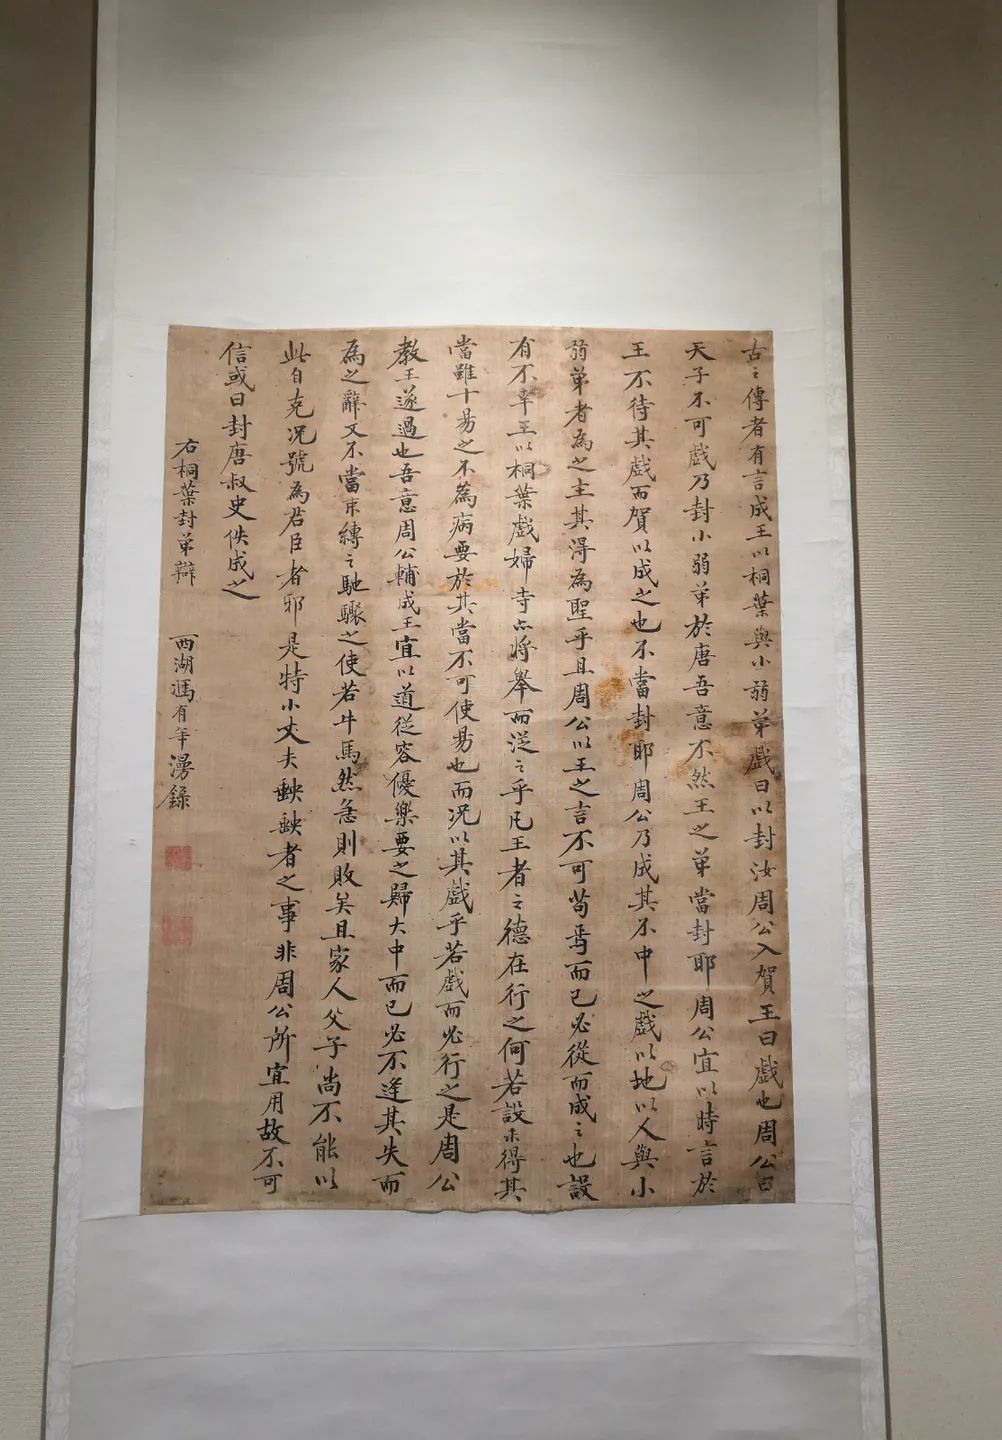 古之傳者有言成王以桐葉與小弱弟戲曰以封汝周公入賀王曰戲也周公曰
天子不可戲乃封小弱弟於唐吾意不然王之弟當封耶周公宜以時言於
王不待其戲而賀以成之也不當封耶周公乃成其不中之戲以地以人與小
弱弟者為之主其淂為聖乎且周公以王之言不可茍焉而已必從而成之也設
有不幸王以桐葉戲婦寺亦將舉而從之乎凡王者之德在行之何若設未得其
當雖十易之不為病要於其當不可使易也而況以其戲乎若戲而必行之是周公
教王遂過也吾意周公輔成王宜以道從容優樂要之歸大中而已必不逢其失而
為之辭又不當束縛之馳驟之使若牛馬然急則敗矣且家人父子尚不能以
此自克況號為君臣者邪是特小丈夫𡙇𡙇者之事非周公所宜用故不可
信或曰封唐叔史佚成之
右桐葉封弟辯 西湖馮有年漫錄